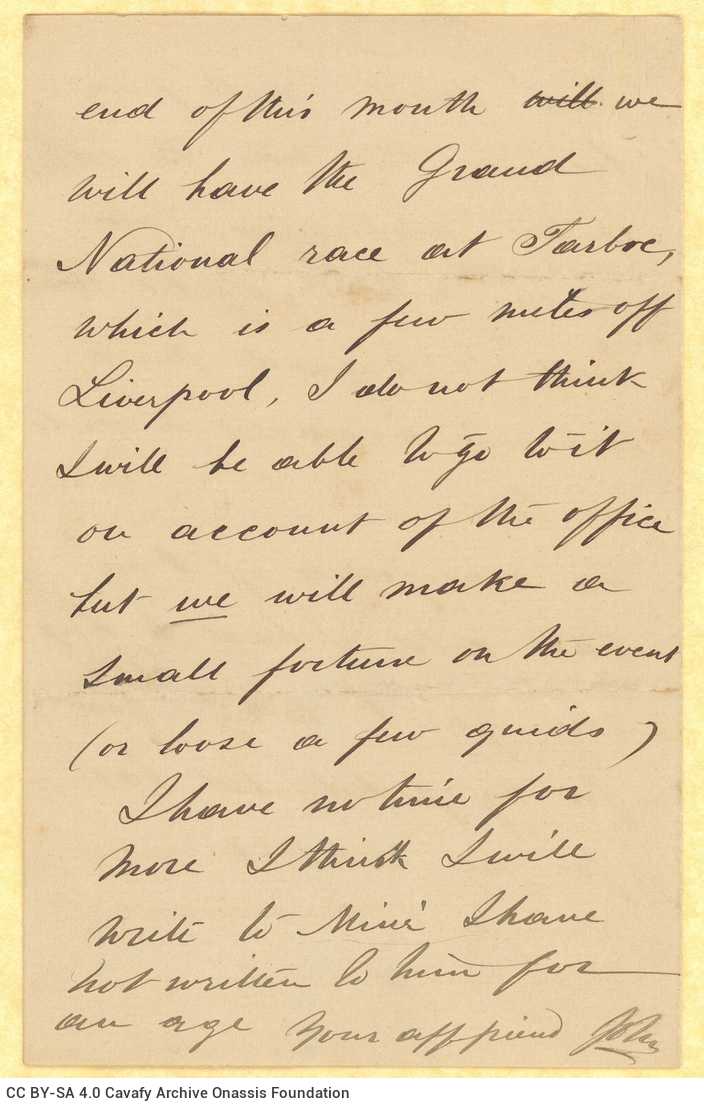 end of this month will we
will have the Grand
National race at Tarboe,
which is a few miles off
Liverpool, I do not think
I will be able to go to it
on account of the office
but we will make a
small fortune on the event
(or loose a few quids)
I have no time for
more I think I will
write to Mimi I have
not written to him for
an age Your aff friend John
CC BY-SA 4.0 Cavafy Archive Onassis Foundation